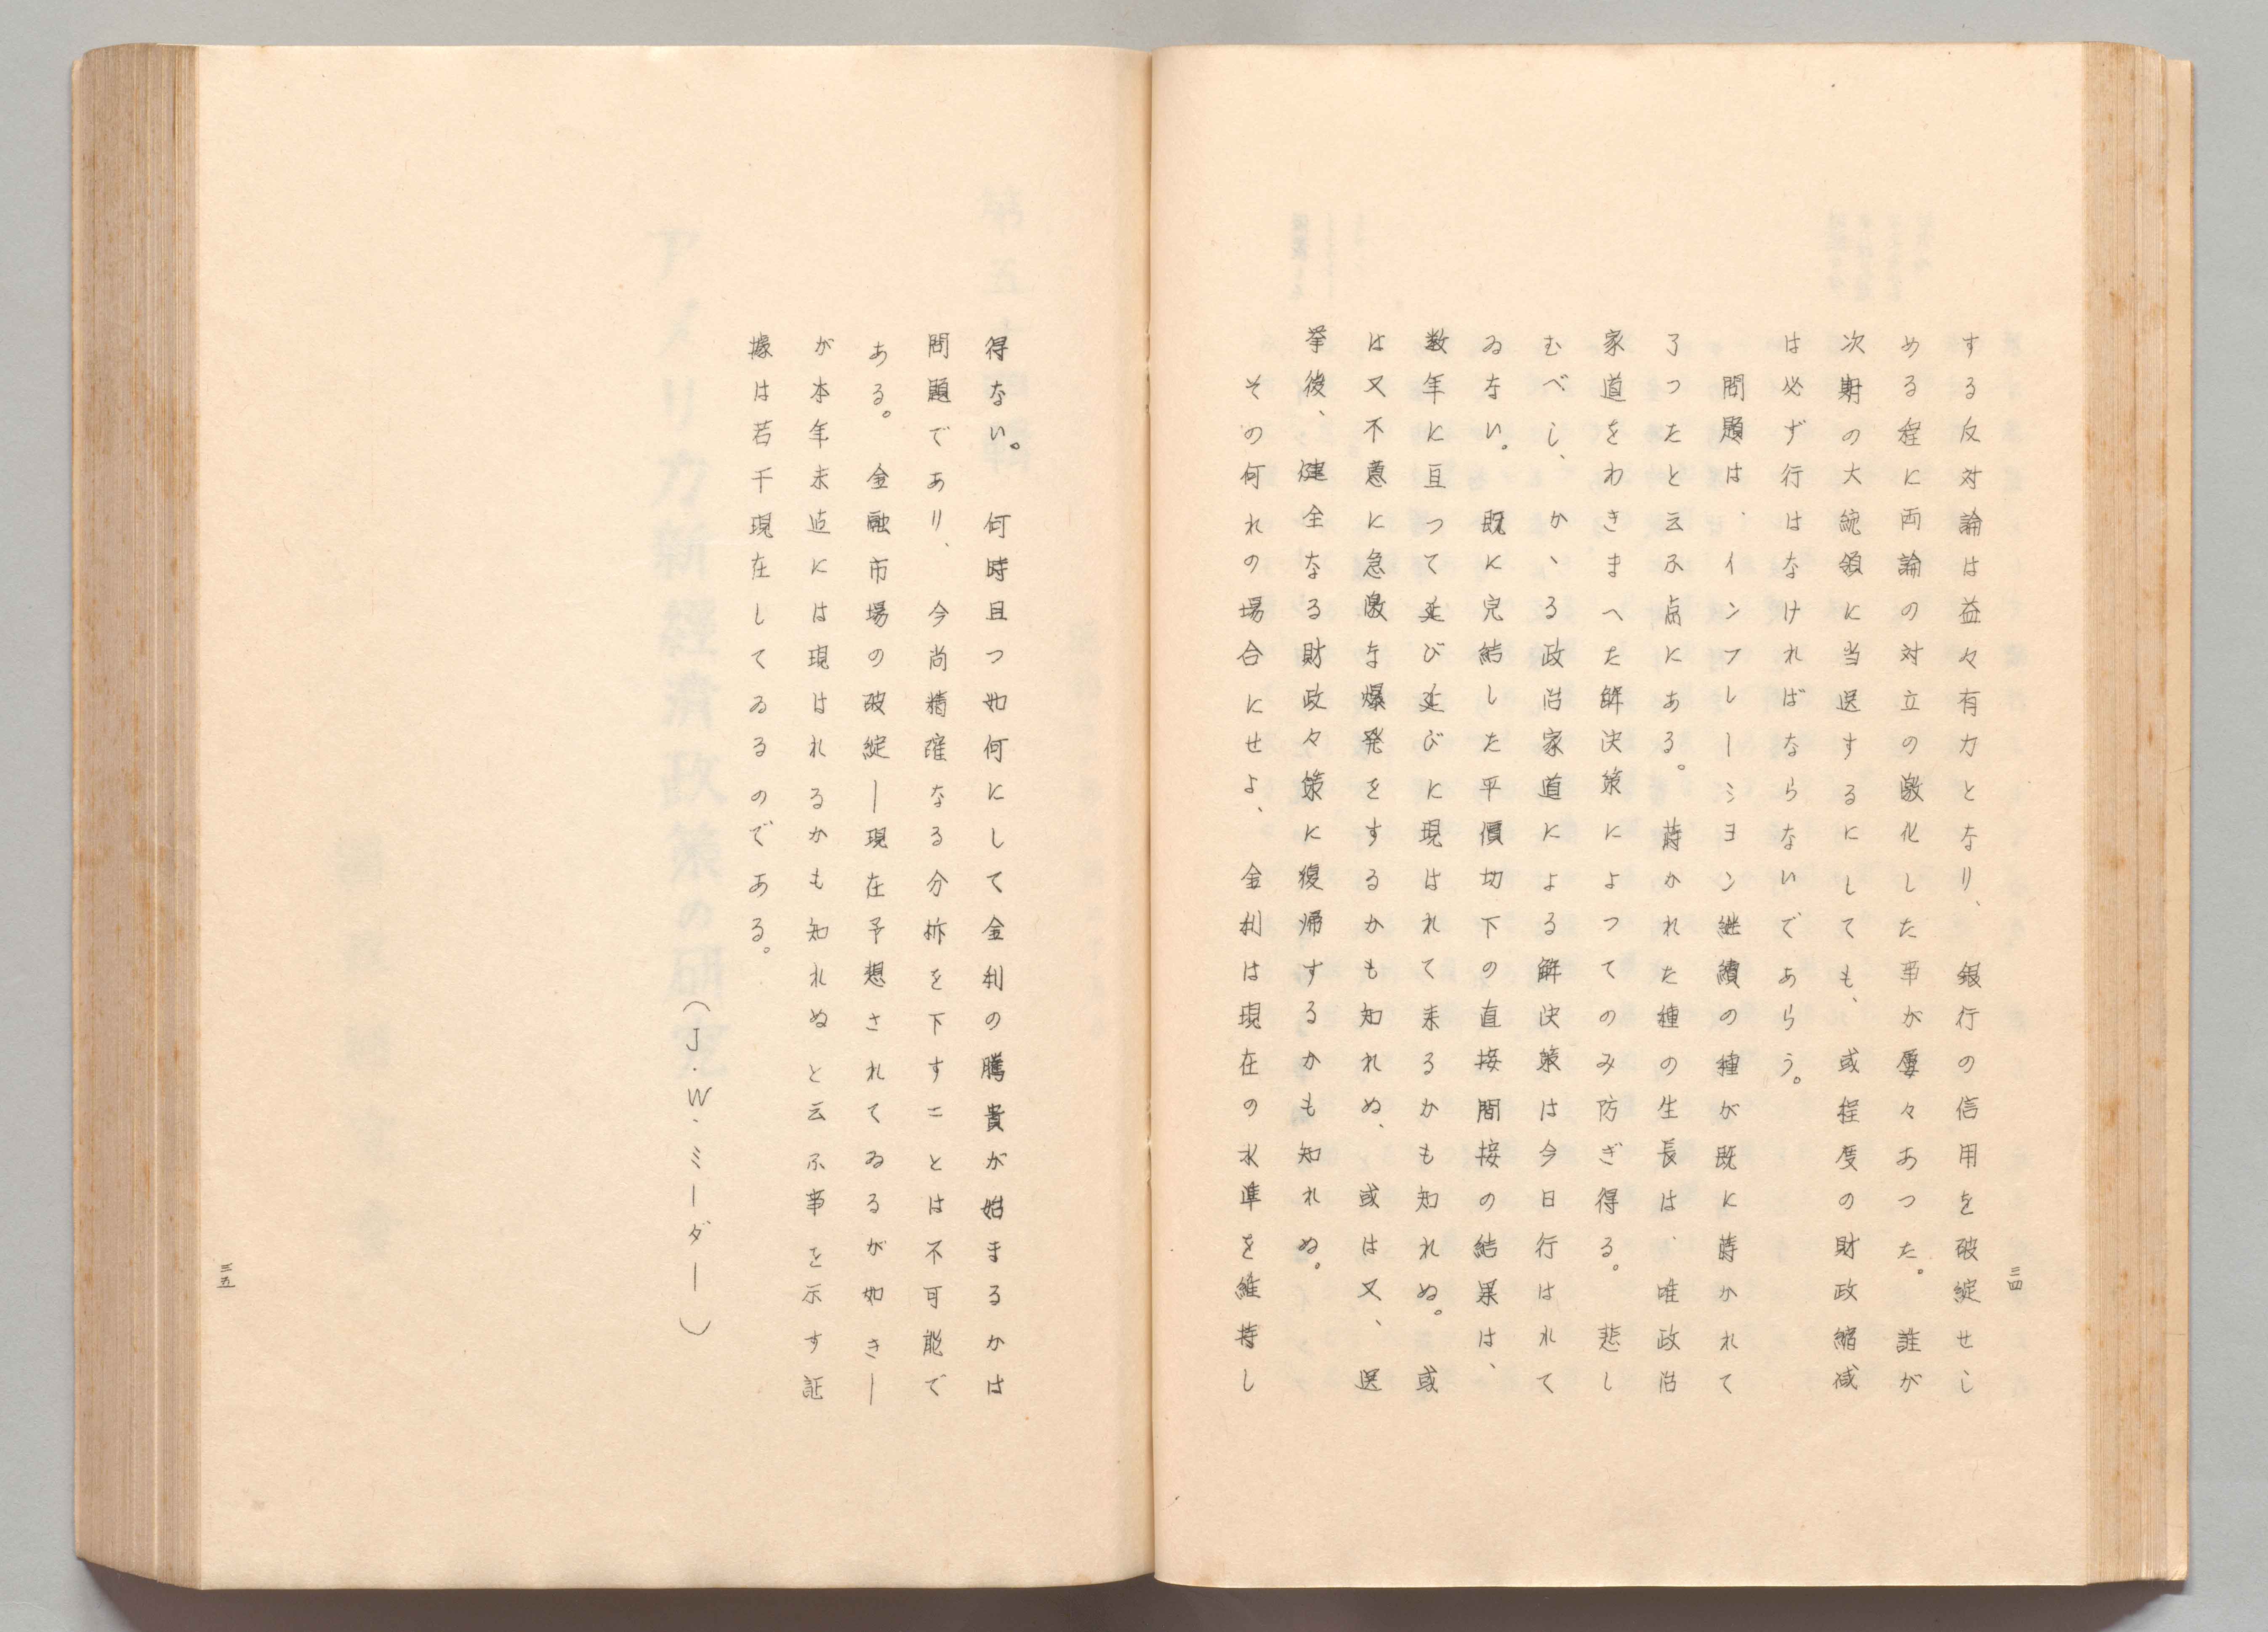 三四
する反対論は益々有力となり、銀行の信用を破綻せし
める程に両論の対立の激化した事が屡々あつた。誰が
次期の大統領に当選するにしても、或程度の財政縮減
は必ず行はなければならないであらう。
問題は、インフレーシヨン継續の種が既に蒔かれて
了つたと云ふ点にある。蒔かれた種の生長は、唯政治
家道をわきまへた解決策によつてのみ防ぎ得る。悲し
むべし、かゝる政治家道による解決策は今日行はれて
ゐない。既に完結した平價切下の直接間接の結果は、
数年に亘つて延び延びに現はれて来るかも知れぬ。或
は又不意に急激な爆発をするかも知れぬ、或は又、選
挙後、健全なる財政々策に復帰するかも知れぬ。
その何れの場合にせよ、金利は現在の水準を維持し
得ない。何時且つ如何にして金利の騰貴が始まるかは
問題であり、今尚精確なる分柝を下すことは不可能で
ある。金融市場の破綻ー現在予想されてゐるが如きー
が本年末迄には現はれるかも知れぬと云ふ事を示す証
據は若干現在してゐるのである。
（J．W．ミーダー）
三五